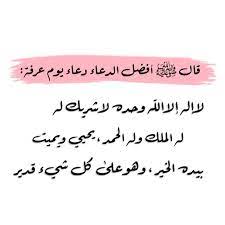 قال ﷺ أفضل الدعاء دعاء يوم عرفة :
لا إله إلا الله وحده لا شريك له
له الملك وله الحمد ، يحيي ويميت
بيده الخير ، وهو على كل شيء قدير